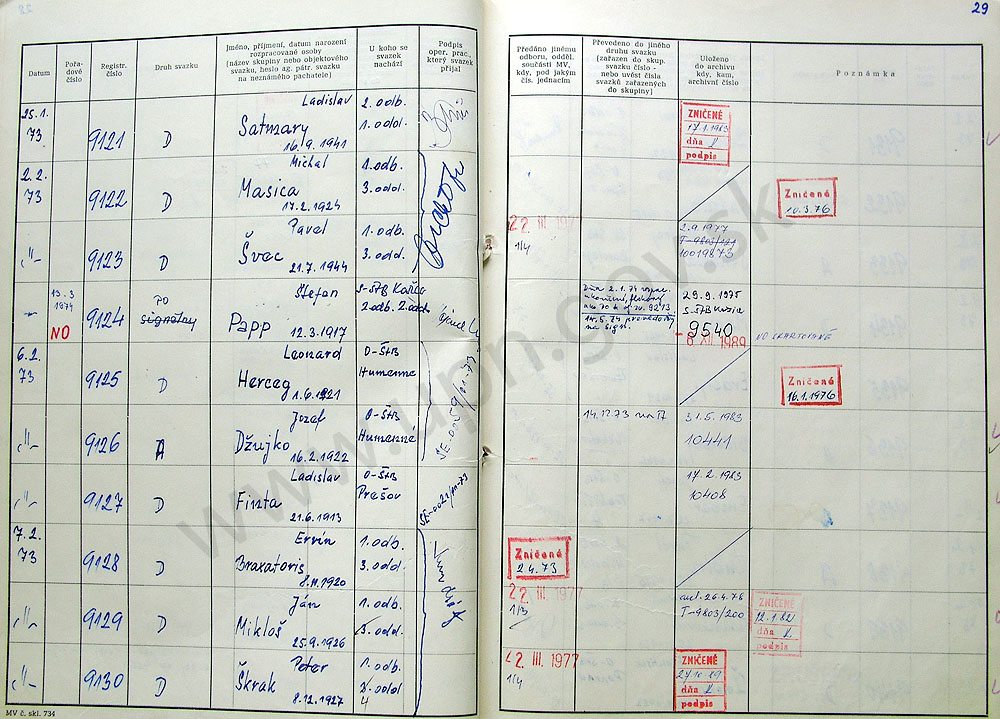 29
Datum
Pořadové číslo
Registr. číslo
Druh svazku
Jméno, příjmení, datum narození
rozpracované osoby
(název skupiny nebo objektového
svazku, heslo ag. pátr. svazku
na neznámého pachatele)
U koho se svazek nachází
Podpis oper. prac., který svazek přijal
Předáno jinému
odboru, odděl.
součásti MV,
kdy, pod jakým
čís. jednacím
Převedeno do jiného
druhu svazku
(zařazen do skup.
svazku číslo -
nebo uvést čísla
svazků zařazených
do skupiny)
Uloženo
do archivu
kdy, kam,
archivní číslo
Poznámka
25.1. 73 9121 D Ladislav Satmary 16.9.1941 2. odb. 1. odd.
ZNIČENÉ 17.1.1983 dňa podpis
2.2. 73 9122 D Michal Masica 17.2.1924 1. odb. 3. odd.
Zničené 10.3.76
-"- 9123 D Pavel Švec 21.7.1944 1. odb. 3. odd.
22. III. 1977 1/4
2.9.1977 T-9803/121 10019873
13.3 1974 NO 9124 po signálny Štefan Papp 12.3.1917 S-ŠtB Košice 2. odb. 2. odd.
29.9.1975 S-ŠtB Košice 9540
6 XII. 1989
6.2. 73 9125 D Leonard Herceg 1.6.1921 O-ŠtB Humenné
Zničené 16.1.1976
-"- 9126 A Jozef Džujko 16.2.1922 O-ŠtB Humenné
14.12.73
31.5.1983 10441
-"- 9127 D Ladislav Finta 21.6.1913 O-ŠtB Prešov
17.2.1983 10408
7.2. 73 9128 D Ervín Brakatoris 8.11.1920 1. odb. 3. odd.
Zničené 2.4.73
-"- 9129 D Ján Mikloš 25.9.1926 1. odb. 3. odd.
22. III. 1977 1/3
26.4.78 T-9803/200
ZNIČENÉ 12.1.82 dňa podpis
-"- 9130 D Peter Škrak 8.12.1927 1. odb. 2. odd. 4
22. III. 1977 1/4
ZNIČENÉ dňa podpis
MV č. skl. 734
www.upn.gov.sk